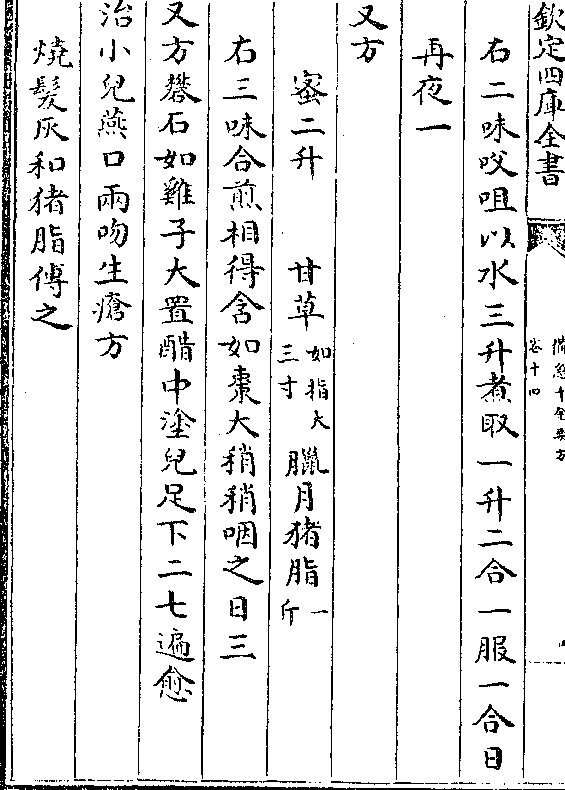 欽定四庫全書
備急千金要方
卷十四
右二味㕮咀以水三升煮取一升二合一服一合日
再夜一
又方
蜜二升 甘草如指大三寸 臘月猪脂一斤
右三味合煎相得含如棗大稍稍咽之日三
又方礬石如雞子大置醋中塗兒足下二七遍愈
治小兒燕口兩吻生瘡方
燒髮灰和猪脂傅之